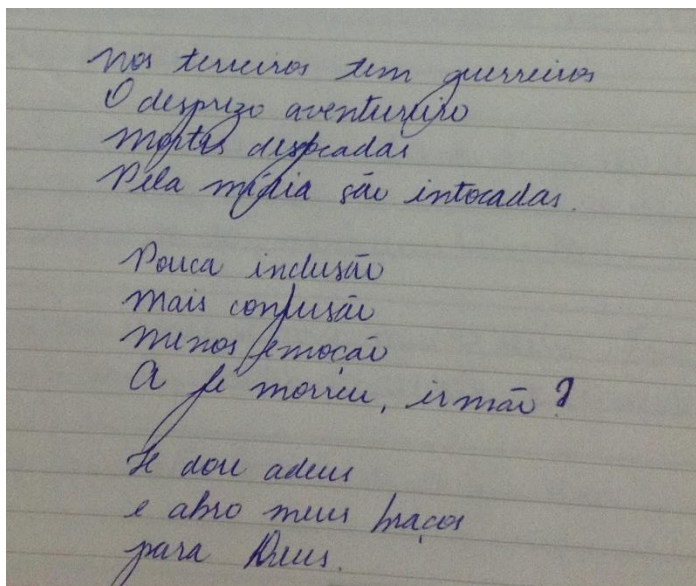 Nos terreiros tem guerreiros
O desprezo aventureiro
Mortes desfocadas
Pela mídia são intocadas.
Pouca inclusão
Mais confusão
Menos emoção
A fé morreu, irmão?
Te dou adeus
e abro meus braços
para Deus.